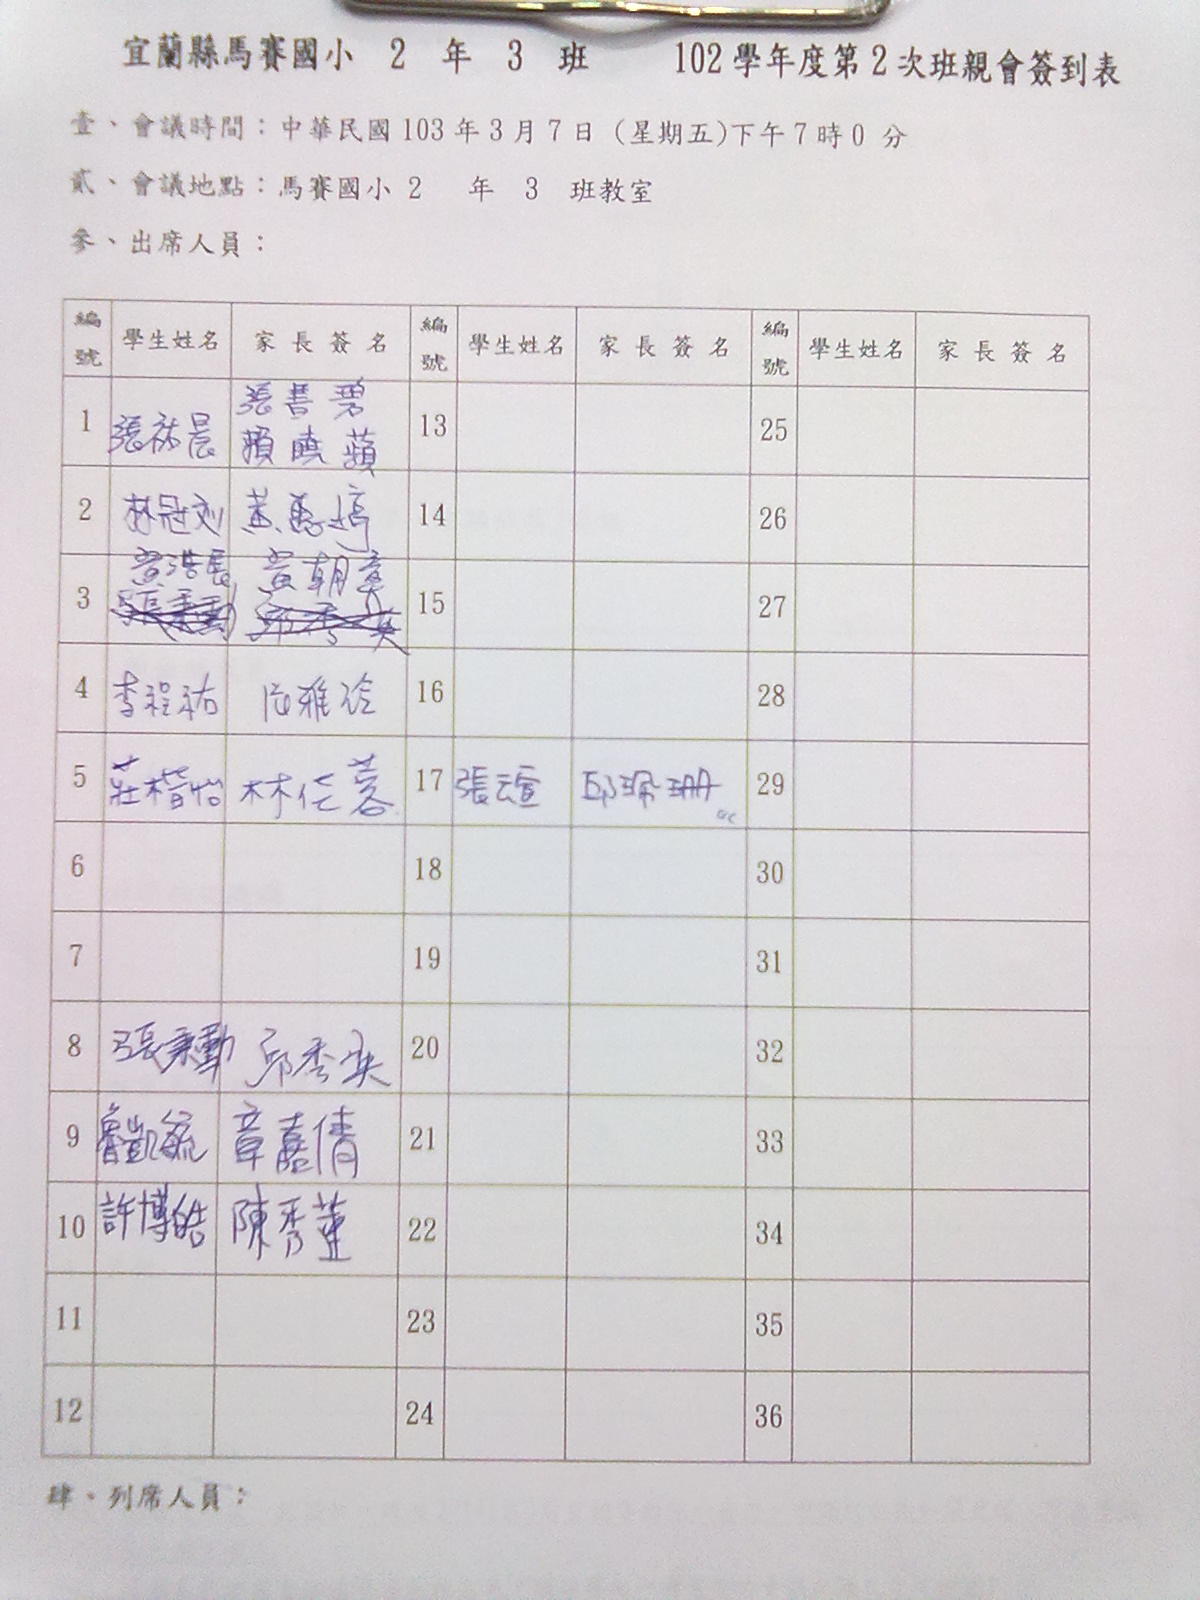 宜蘭縣馬賽國小 2 年 3 班 102學年度第2次班親會簽到表
壹、會議時間：中華民國103年3月7日 (星期五)下午7時0 分
貳、會議地點：馬賽國小 2 年 3 班教室
參、出席人員：
編號 學生姓名 家長簽名 編號 學生姓名 家長簽名 編號 學生姓名 家長簽名
1 張祐晨 張善碧 賴曉蘋 13 25
2 林冠 黃 婷 14 26
3 黃浩宸 黃朝 15 27
4 李程祐 雅玲 16 28
5 莊楷怡 林 蓉 17 張瑄 邱珮珊 29
6 18 30
7 19 31
8 張秉勳 邱秀英 20 32
9 凱毓 章嘉倩 21 33
10 許博皓 陳秀蓮 22 34
11 23 35
12 24 36
肆、列席人員：